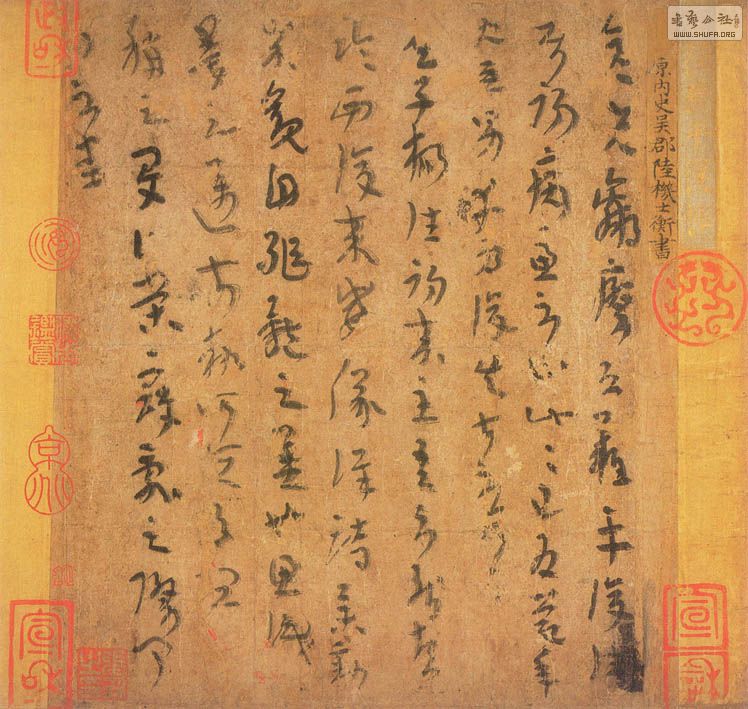 書藝公社
WWW.SHUFA.ORG
原内史吳郡陸機士衡書
彦先羸瘵恐難平復往屬
初病慮不止此此已為慶承
使唯男幸為復失前憂耳
吳子楊往初來主吾不能盡
臨西復來威儀詳跱舉動
成觀自軀體之美也思識
量之邁前執所恒有宜
稱之夏伯榮寇亂之際聞
問不悉
政和
宣和
宣和